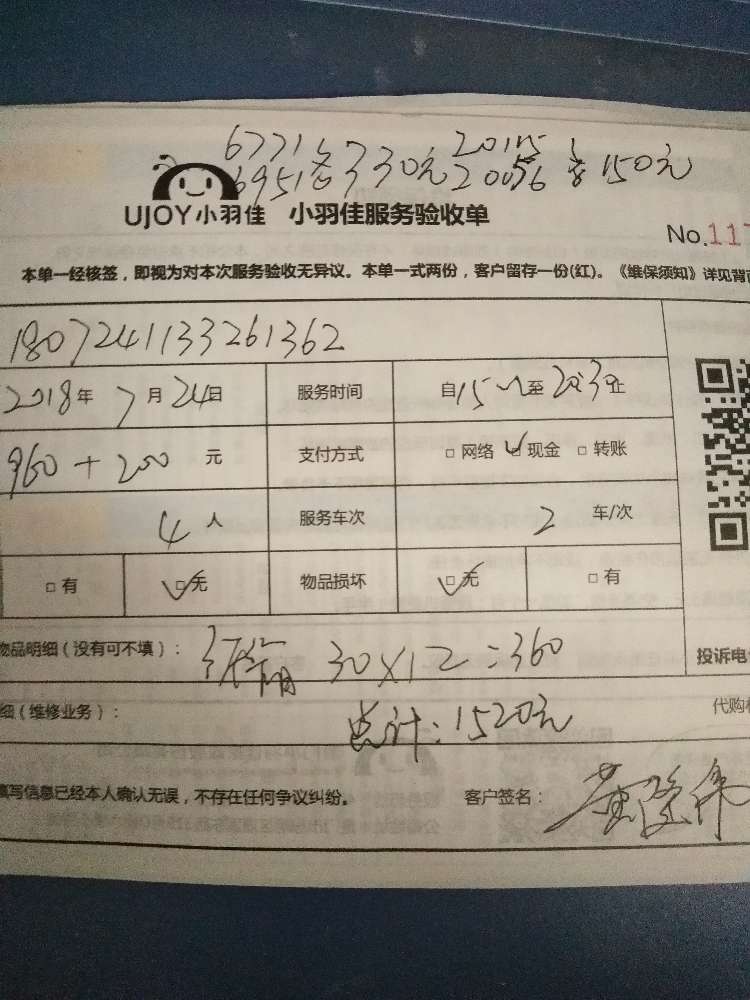 6771各330元 20115
6951 20096 各150元
UJOY小羽佳 小羽佳服务验收单
No.117
本单一经核签，即视为对本次服务验收无异议。本单一式两份，客户留存一份(红)。《维保须知》详见背面
1807241133261362
2018年 7月 24日 服务时间 自15 至20:30止
960+200 元 支付方式 □ 网络 ☑ 现金 □ 转账
4 人 服务车次 2 车/次
□ 有 ☑ 无 物品损坏 ☑ 无 □ 有
物品明细（没有可不填）： 纸箱 30×12=360
投诉电
细（维修业务）： 总计：1520元
代购
填写信息已经本人确认无误，不存在任何争议纠纷。 客户签名：